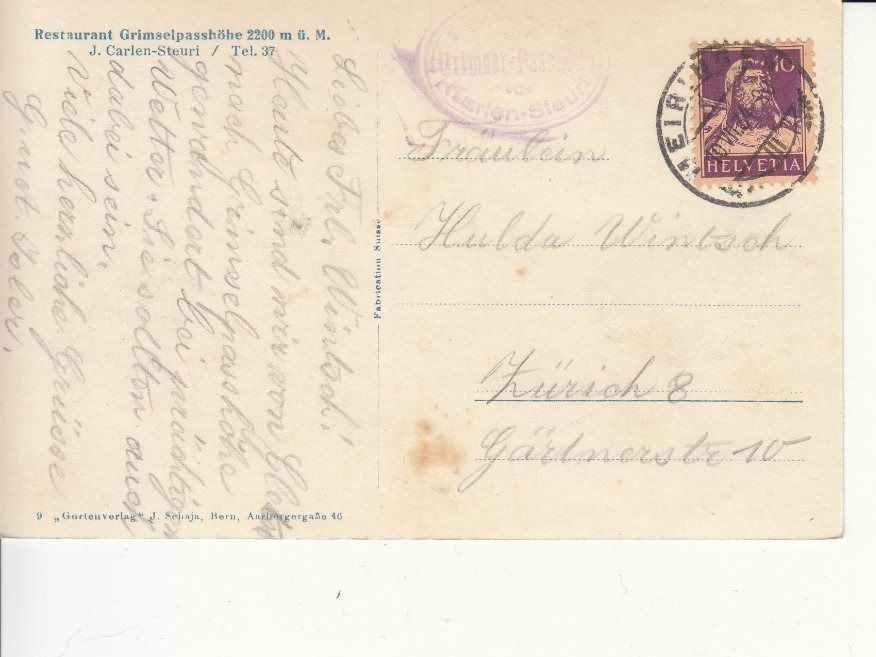 Restaurant Grimselpasshöhe 2200 m ü. M.
J. Carlen-Steuri / Tel. 37
Liebes Frl. Wintsch!
Heute sind wir von
nach Grimselpasshöhe
gewandert bei prächtigem
Wetter. Sie sollten auch
dabei sein.
Viele herzliche Grüsse
Fabrication Suisse
Grimsel-Passhöhe
Carlen-Steuri
10
HELVETIA
MEIRINGEN
Fräulein
Hulda Wintsch
Zürich 8
Gärtnerstr 10
9 „Gurtenverlag" J. Schaja, Bern, Aarbergergaße 46